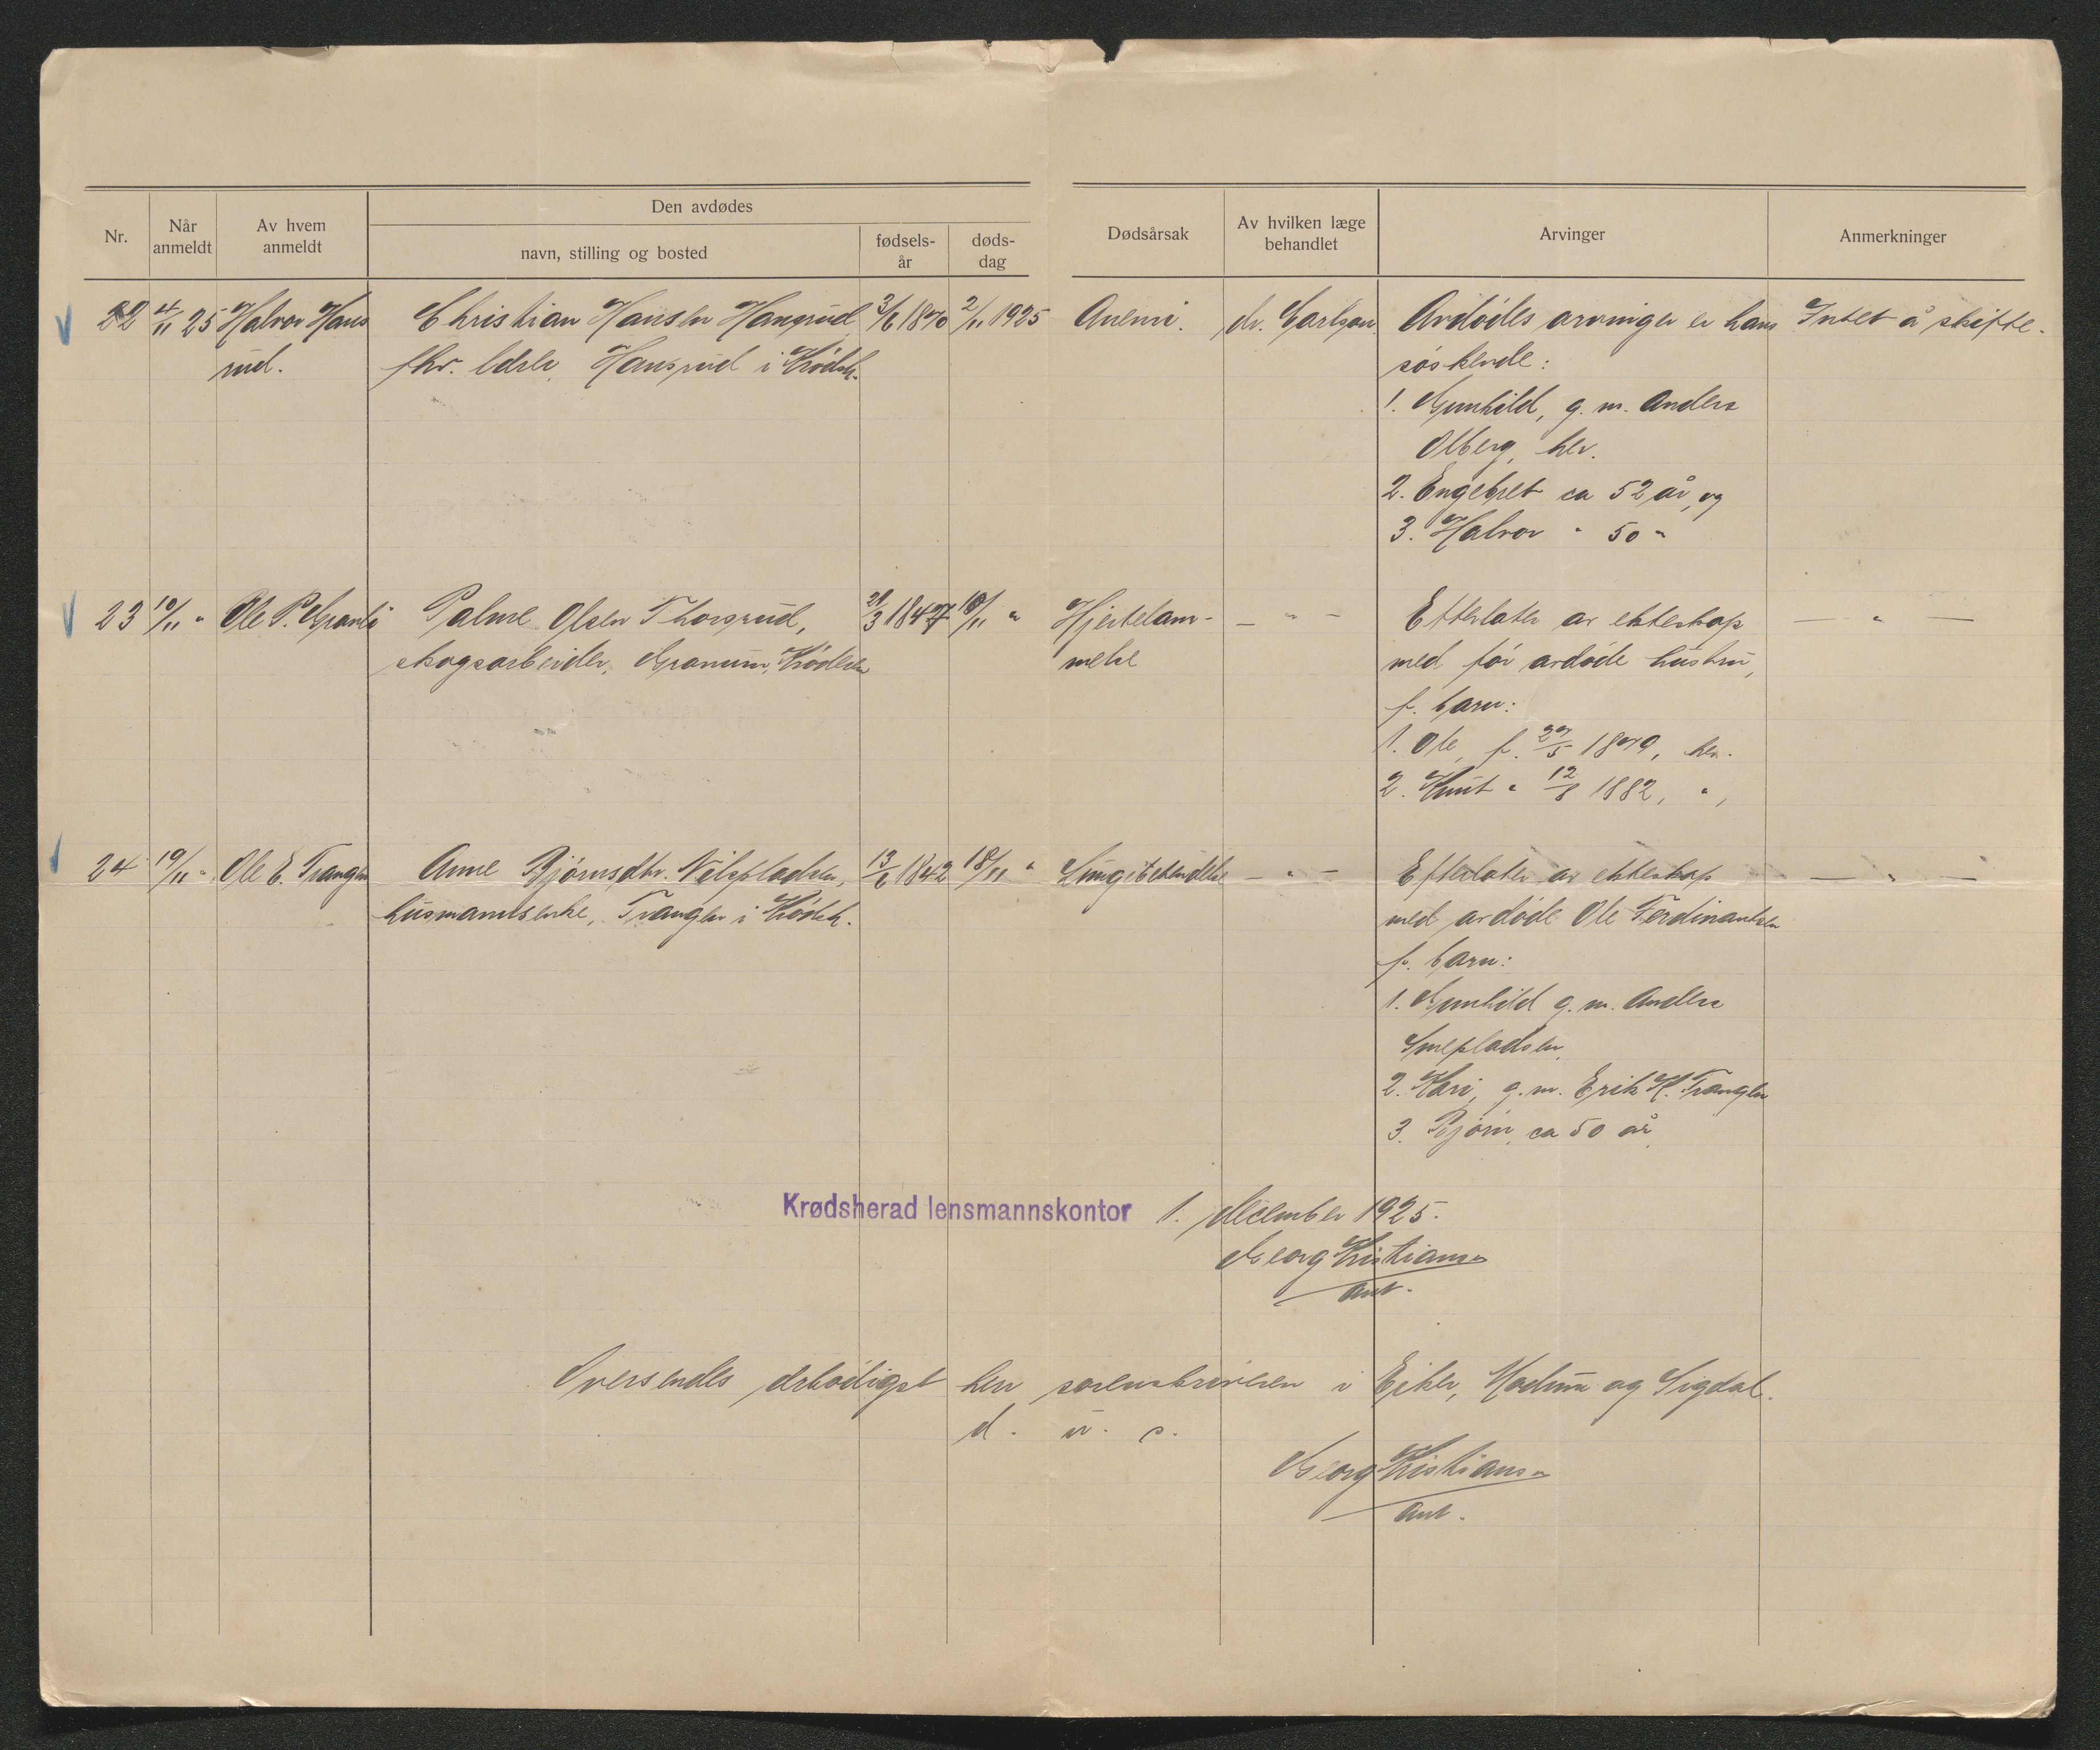 Den avdødes
Nr.
Når anmeldt
Av hvem anmeldt
navn, stilling og bosted
fødsels-år
døds-dag
Dødsårsak
Av hvilken læge behandlet
Arvinger
Anmerkninger
22 4/11 25 Halvor Hans Christian Hansen Hansrud 3/6 1870 2/11 1925 Anemi. dr. Carlson. Avdødes arvinger er hans Intet å skifte.
rud. Hansrud i Krødsh. søskende:
1. Gunhild, g. m. Anders
Olberg, her.
2. Engebret ca 52 år, og
3. Halvor " 50 "
23 10/11 " Ole P. Palme Olsen Thorsrud, 21/3 1847 10/11 " Hjertelam- — " — Efterlater av ekteskap — " —
skogsarbeider, Granum, Krødsh. melse med før avdøde hustru,
f. barn:
1. Ole, f. 27/5 1879, her.
2. Knut " 12/8 1882, ",
24 19/11 " Ole E. Trangen Anne Bjørnsdtr. Nilspladsen, 13/6 1842 18/11 " Lungebetendelse — " — Efterlater av ekteskap — " —
husmannsenke, Trangen i Krødsh. med avdøde Ole Ferdinantsen
f. barn:
1. Gunhild g. m. Anders
Smepladsen
2. Kari, g. m. Erik K. Trangen
3. Bjørn, ca 50 år.
Krødsherad lensmannskontor 1. december 1925.
Georg Kristiansen
ant.
Oversendes ærbødigst herr sorenskriveren i Eiker, Modum og Sigdal.
d. u. s.
Georg Kristiansen
ant.